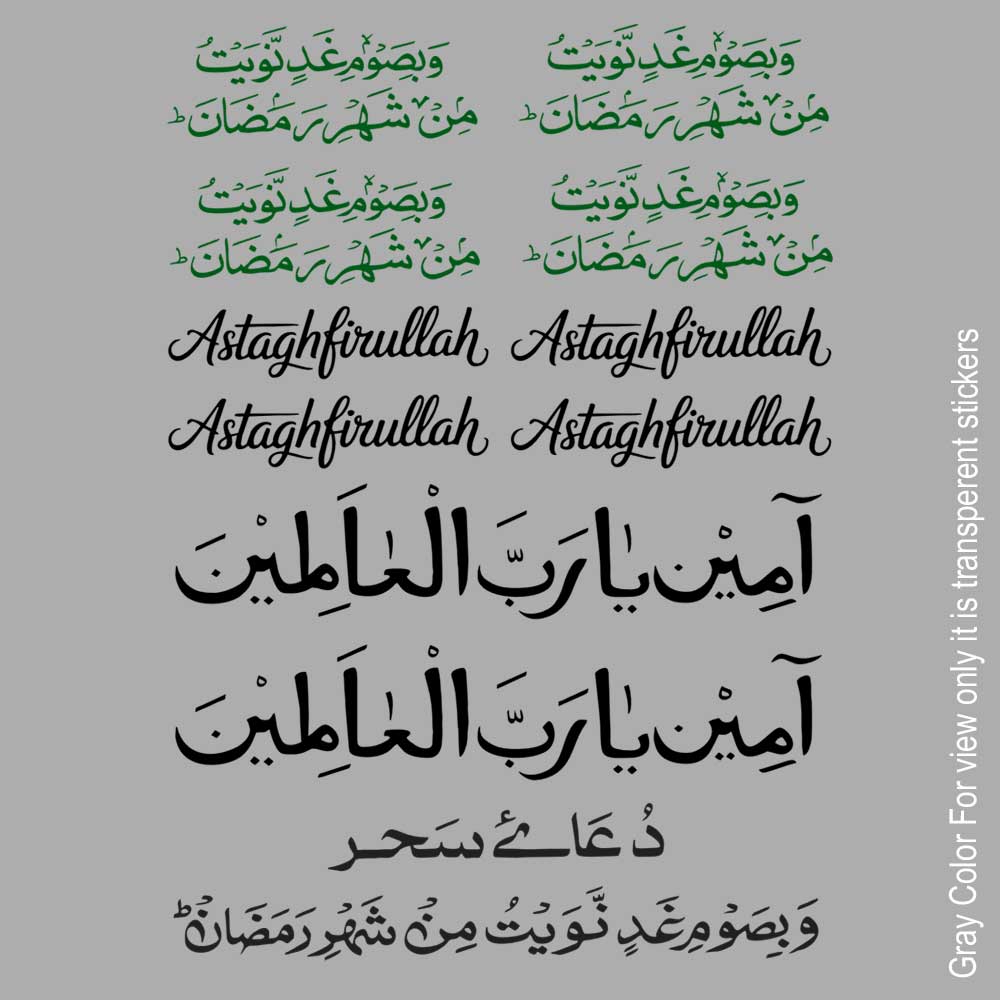 وَبِصَوْمِ غَدٍ نَّوَيْتُ
مِنْ شَهْرِ رَمَضَانَ ؕ
وَبِصَوْمِ غَدٍ نَّوَيْتُ
مِنْ شَهْرِ رَمَضَانَ ؕ
وَبِصَوْمِ غَدٍ نَّوَيْتُ
مِنْ شَهْرِ رَمَضَانَ ؕ
وَبِصَوْمِ غَدٍ نَّوَيْتُ
مِنْ شَهْرِ رَمَضَانَ ؕ
Astaghfirullah
Astaghfirullah
Astaghfirullah
Astaghfirullah
آمِيْن يٰا رَبَّ الْعٰالَمِيْنَ
آمِيْن يٰا رَبَّ الْعٰالَمِيْنَ
دُعَائے سَحر
وَبِصَوْمِ غَدٍ نَّوَيْتُ مِنْ شَهْرِ رَمَضَانْ ؕ
Gray Color For view only it is transperent stickers